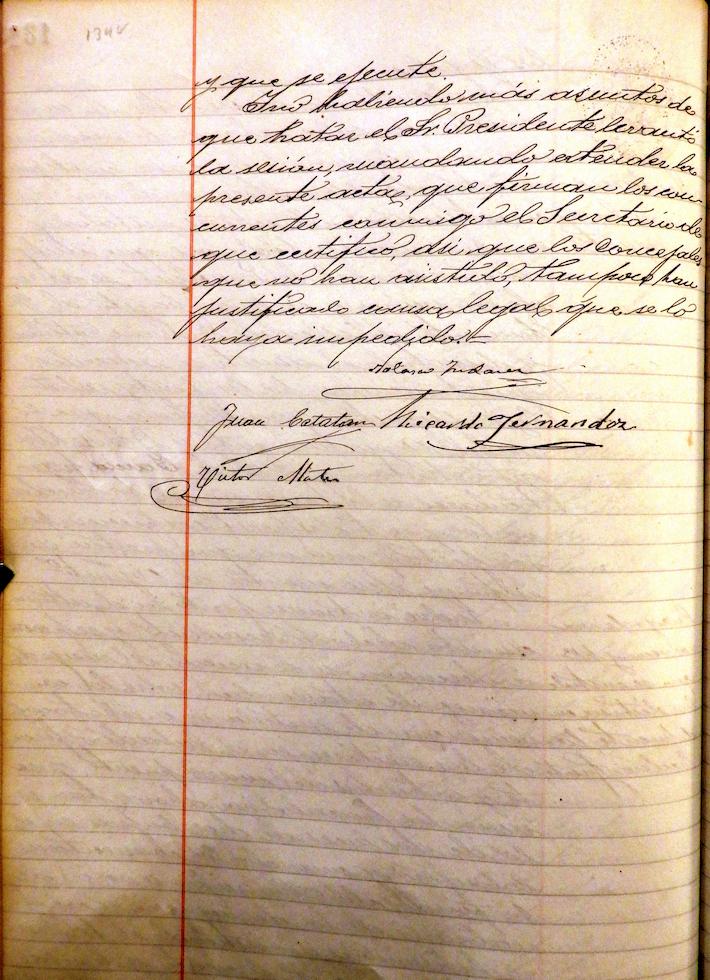 134v
y que se ejecute.
Y no habiendo más asuntos de
que tratar el Sr. Presidente levantó
la sesión, mandando extender la
presente acta, que firman los con-
currentes conmigo el Secretario de
que certifico, así que los Concejales
que no han asistido, tampoco han
justificado causa legal que se lo
haya impedido.-
Juan Catalan Ricardo Fernandez
Victor Mateo